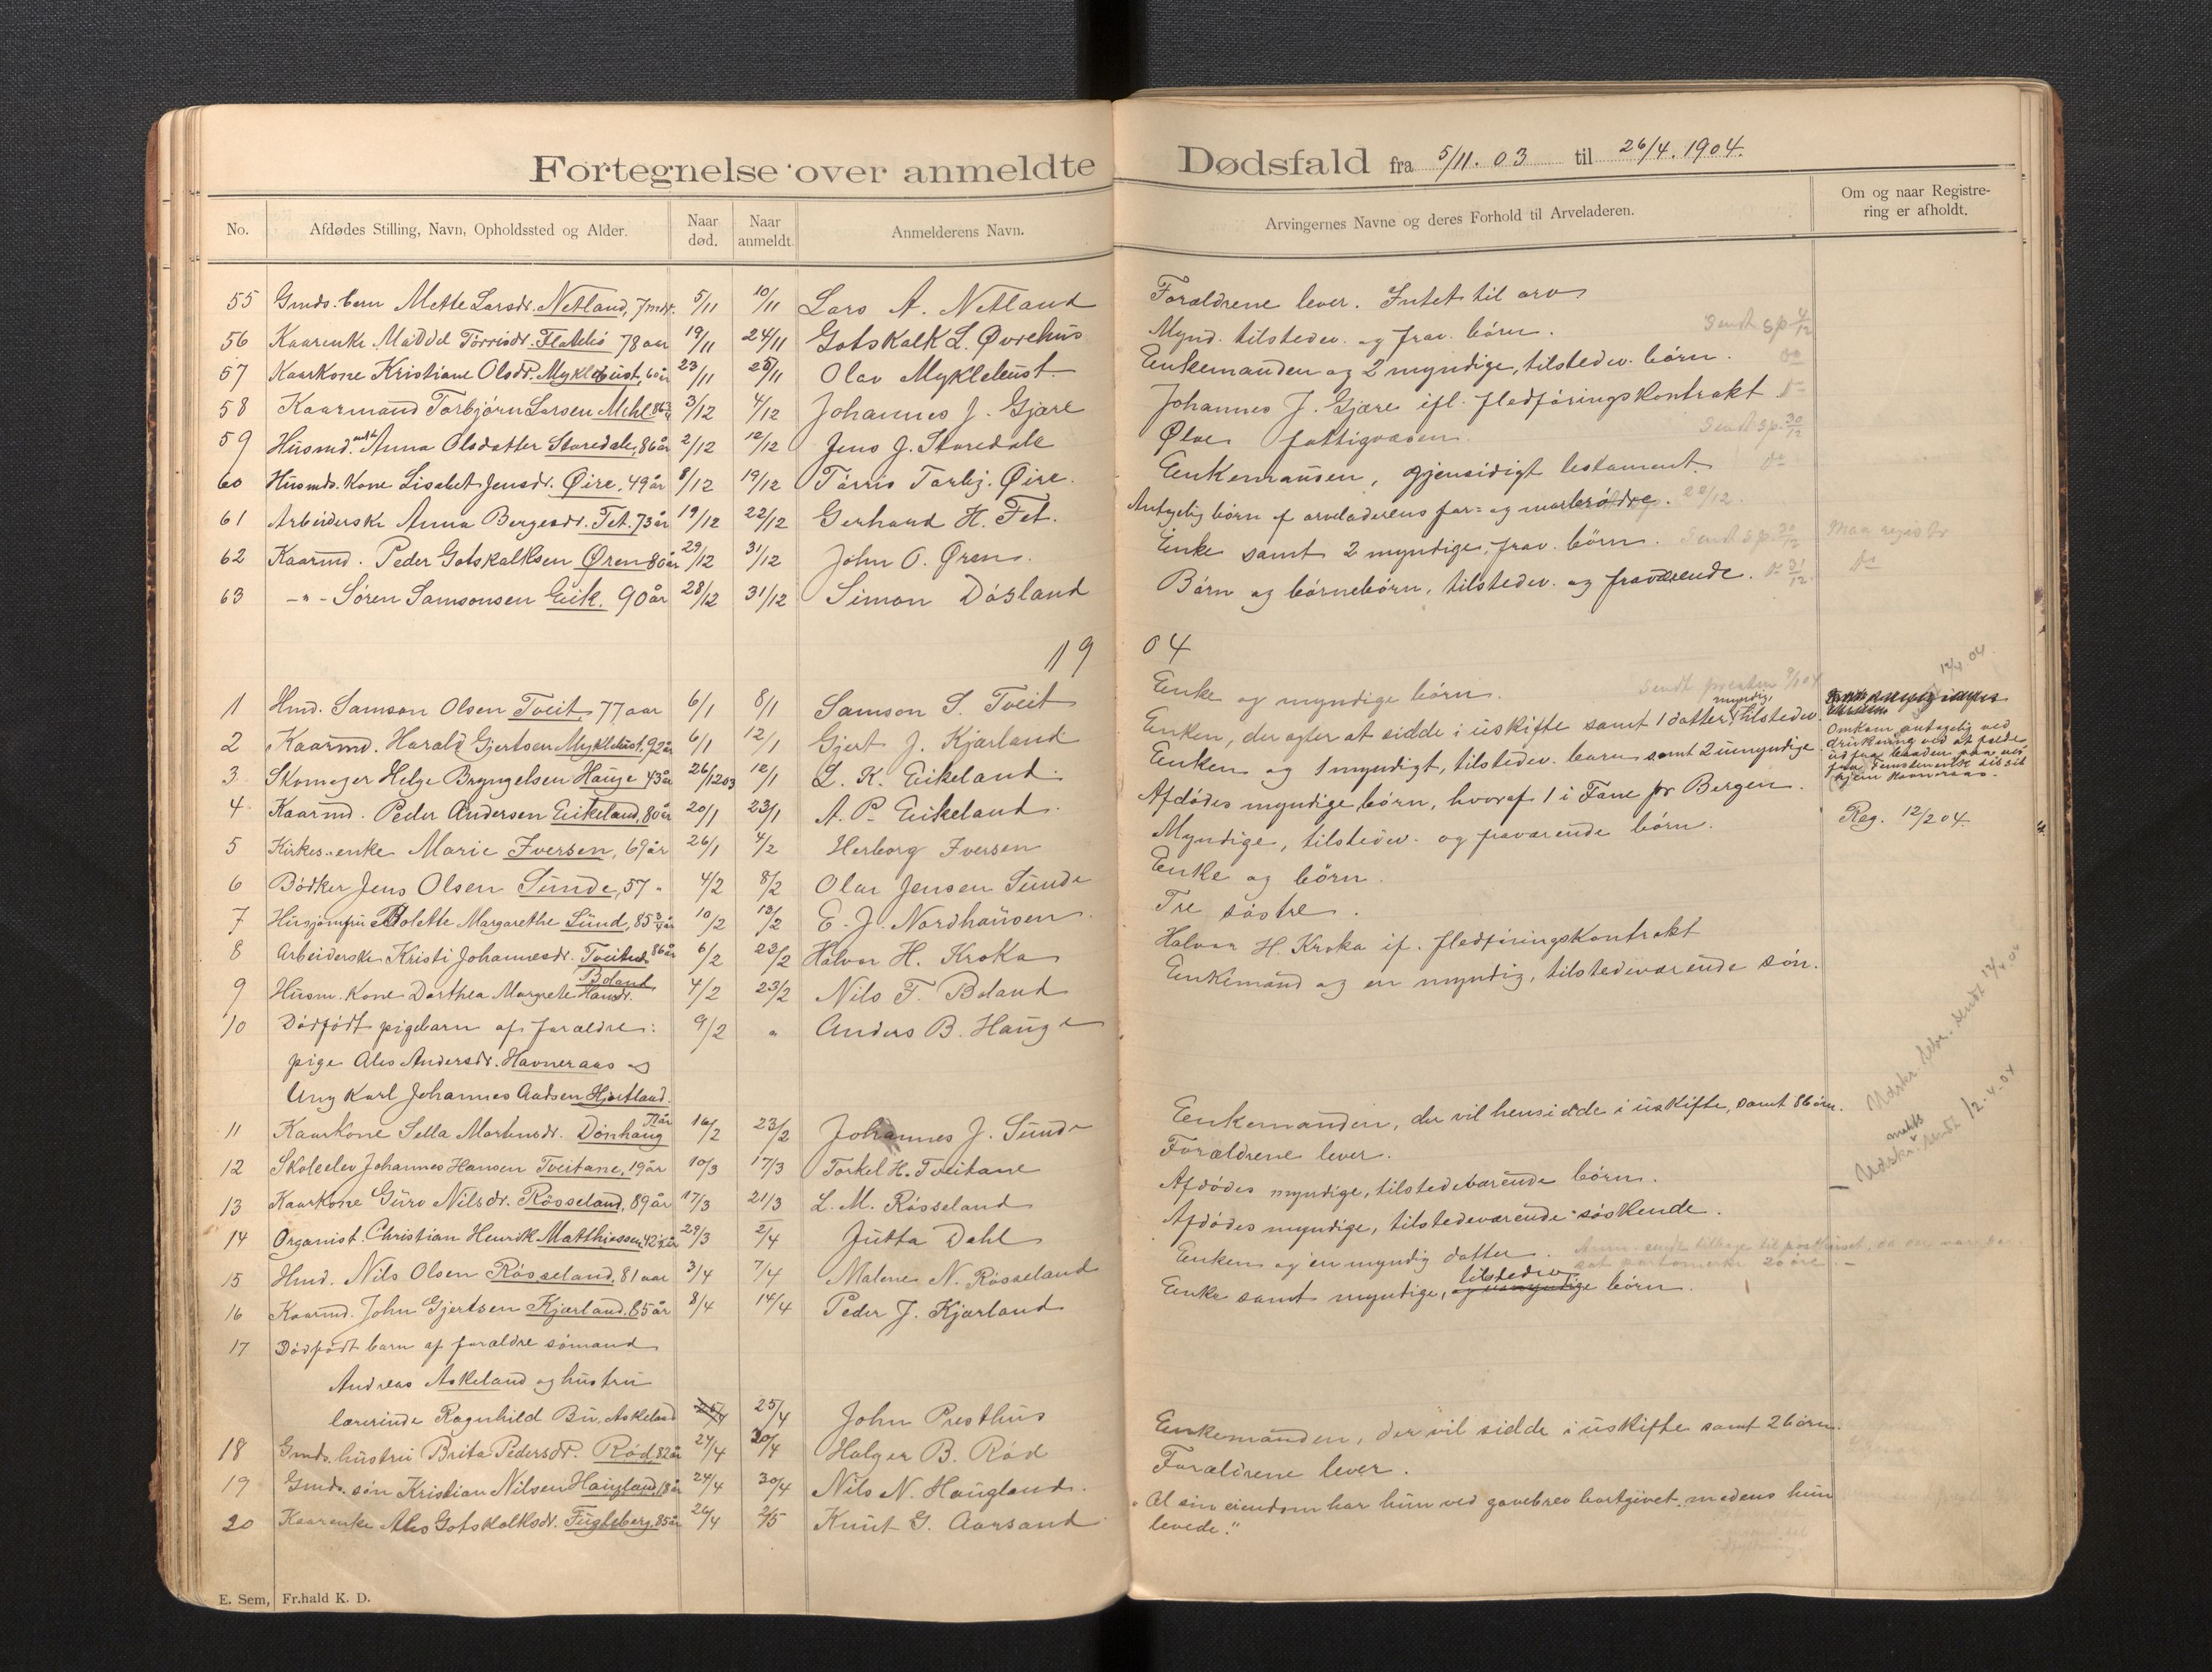 Fortegnelse over anmeldte Dødsfald fra 5/11. 03 til 26/4. 1904.
No. Afdødes Stilling, Navn, Opholdssted og Alder. Naar død. Naar anmeldt. Anmelderens Navn. Arvingernes Navne og deres Forhold til Arveladeren. Om og naar Registrering er afholdt.
55 Gmds. barn Mette Larsdr. Netland, 7 mdr. 5/11 10/11 Lars A. Netland Forældrene lever. Intet til arv
56 Kaarenke Madde Törrisdr. Flatebö 78 aar 19/11 24/11 Gotskalk L. Øvrehus Mynd. tilstedev. og frav. börn. Sendt sp 4/12
57 Kaarkone Kristiane Olsdr. Myklebust, 60 år 23/11 28/11 Olav Myklebust. Enkemanden og 2 myndige, tilstedev. börn. do
58 Kaarmand Torbjörn Larsen Mehl 86 3/12 4/12 Johannes J. Gjære Johannes J. Gjære ifl. fledföringskontrakt do
59 Husmd. enke Anna Olsdatter Staredale, 86 år 2/12 12/12 Jens J. Staredale Ølve fattigvæsen. Sendt sp. 30/12
60 Husmds. kone Lisabet Jensdr. Øire, 49 år 8/12 19/12 Törris Torbj. Øire. Enkemanden, gjensidigt testament. do
61 Arbeiderske Anna Bergesdr. Fet. 73 år 19/12 22/12 Gerhard H. Fet. Antagelig börn af arveladerens far= og morbrödre. 28/12.
62 Kaarmd. Peder Gotskalksen Øren 80 år 29/12 31/12 John O. Øren. Enke samt 2 myndige, frav. börn. Sendt sp. 30/12 Maa regist
63 -"- Sören Samsonsen Eik. 90 år 28/12 31/12 Simon Dösland Börn og börnebörn, tilstedev. og fraværende. do 31/12. do
1904
1 Hmd. Samson Olsen Tveit 77 aar 6/1 8/1 Samson S. Tveit Enke og myndige börn. Sendt presten 9/1 04
2 Kaarmd. Harald Gjertsen Myklebust, 92 år 6/1 12/1 Gjert J. Kjærland Enken, der agter at sidde i uskifte samt 1 datter, myndig, tilstedev.
3 Skomager Helge Bryngelsen Hauge 43 år 26/12 03 12/1 L. K. Eikeland. Enken og 1 myndigt, tilstedev. barn samt 2 umyndige Omkom antagelig ved drukning ved at falde ud fra baaden paa vei fra Temstenenes til sit hjem Havneraas.
4 Kaarmd. Peder Andersen Eikeland, 80 år 20/1 23/1 A. P. Eikeland. Afdödes myndige börn, hvoraf 1 i Fane pr Bergen. Reg. 12/2 04.
5 Kirkes. enke Marie Iversen, 69 år 26/1 4/2 Herborg Iversen Myndige, tilstedev. og fraværende börn.
6 Bödker Jens Olsen Sunde, 57 " 4/2 8/2 Olar Jensen Sunde Enke og börn.
7 Husjomfru Bolette Margarethe Lund, 85 3/4 år 10/2 13/2 E. J. Nordhausen. Tre söstre.
8 Arbeiderske Kristi Johannesdr. Tveitnes 86 år 6/2 23/2 Halvor H. Kroka Halvor H. Kroka if. fledföringskontrakt
9 Husm. Kone Dorthea Margrete Hansdr. Boland 4/2 23/2 Nils T. Boland Enkemand og en myndig, tilstedeværende sön.
10 Dödfödt pigebarn af forældre: 9/2 " Anders B. Hauge
pige Ales Andersdr. Havneraas og
Ung Karl Johannes Aadsen Hjortland.
11 Kaarkone Sella Martinsdr. Dönhaug 16/2 23/2 Johannes J. Sunde Enkemanden, der vil hensidde i uskifte, samt 8 börn.
12 Skoleelev Johannes Hansen Tveitane, 19 år 10/3 17/3 Torkel H. Tveitane Forældrene lever.
13 Kaarkone Guro Nilsdr. Rösseland, 89 år 17/3 21/3 L. M. Rösseland Afdödes myndige, tilstedeværende börn.
14 Organist Christian Henrik Matthiessen 42 1/2 år 29/3 2/4 Jutta Dahl Afdödes myndige, tilstedeværende söskende.
15 Hmd. Nils Olsen Rösseland, 81 aar 3/4 7/4 Malene N. Rösseland Enken og en myndig datter. Anm. sendt tilbage til posthuset
16 Kaarmd. John Gjertsen Kjærland. 85 år 8/4 14/4 Peder J. Kjærland Enke samt myndige, tilstedev. og umyndige börn.
Udskr. febr. sendt 12/4 04
Udskr. marts sendt 12.4.04
17 Dödfödt barn af forældre sömand
Andreas Askeland og hustru
lærerinde Ragnhild Bu. Askeland 25/4 25/4 John Presthus
18 Gmds. hustru Brita Pedersdr. Röd 82 år 24/4 30/4 Holger B. Röd Enkemanden, der vil sidde i uskifte samt 2 börn.
19 Gmds. sön Kristian Nilsen Haugland, 18 år 24/4 30/4 Nils N. Haugland. Forældrene lever.
20 Kaarenke Ales Gotskalksdr. Fugleberg 85 år 26/4 2/5 Knut G. Aarsand "Al sin eiendom har hun ved gavebrev bortgivet medens hun
levede."
E. Sem, Fr.hald K. D.